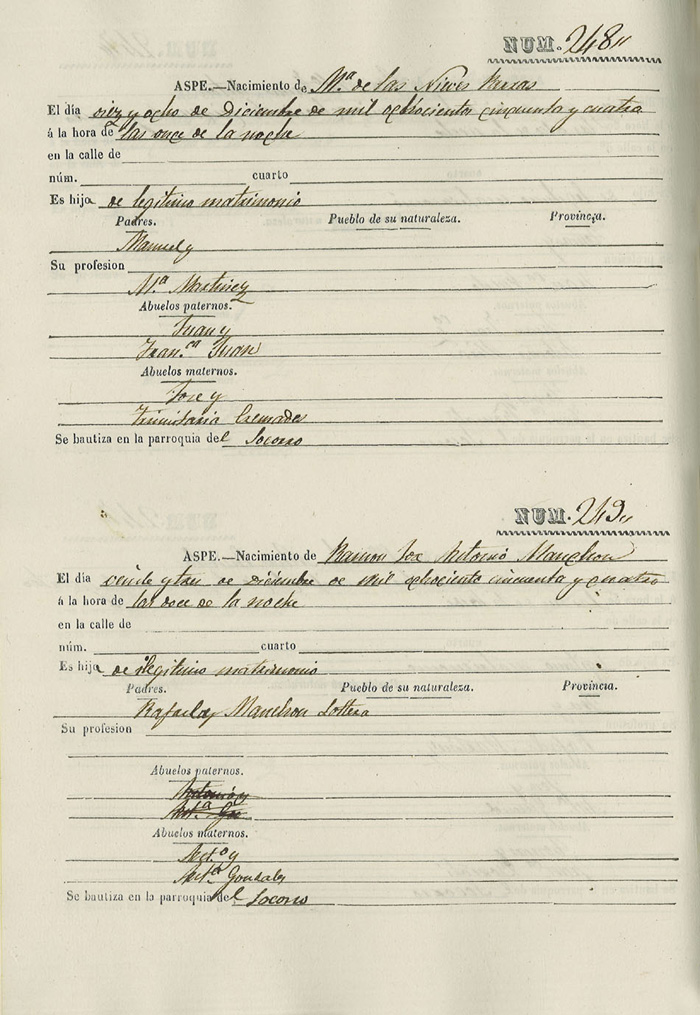 NUM. 248,,
ASPE.—Nacimiento de Mª de las Nieves
El dia diez y ocho de Diciembre de mil ochocientos cinquenta y cuatro
á la hora de las once de la noche
en la calle de
núm. cuarto
Es hija de legitimo matrimonio
Padres. Pueblo de su naturaleza. Provincia.
Manuel y
Su profesion
Mª Martinez
Abuelos paternos.
Juan y
Fran.ca Juan
Abuelos maternos.
Jose y
Trinitaria Cremades
Se bautiza en la parroquia del Socorro
NUM. 249,,
ASPE.—Nacimiento de Ramon Jose Antonio Manchon
El dia veinte y tres de Diciembre de mil ochociento cincuenta y cuatro
á la hora de las doce de la noche
en la calle de
núm. cuarto
Es hijo de ilegitimo matrimonio
Padres. Pueblo de su naturaleza. Provincia.
Rafaela Manchon Soltera
Su profesion
Abuelos paternos.
Abuelos maternos.
Ant.o y
Ant.a Gonzalez
Se bautiza en la parroquia del Socorro